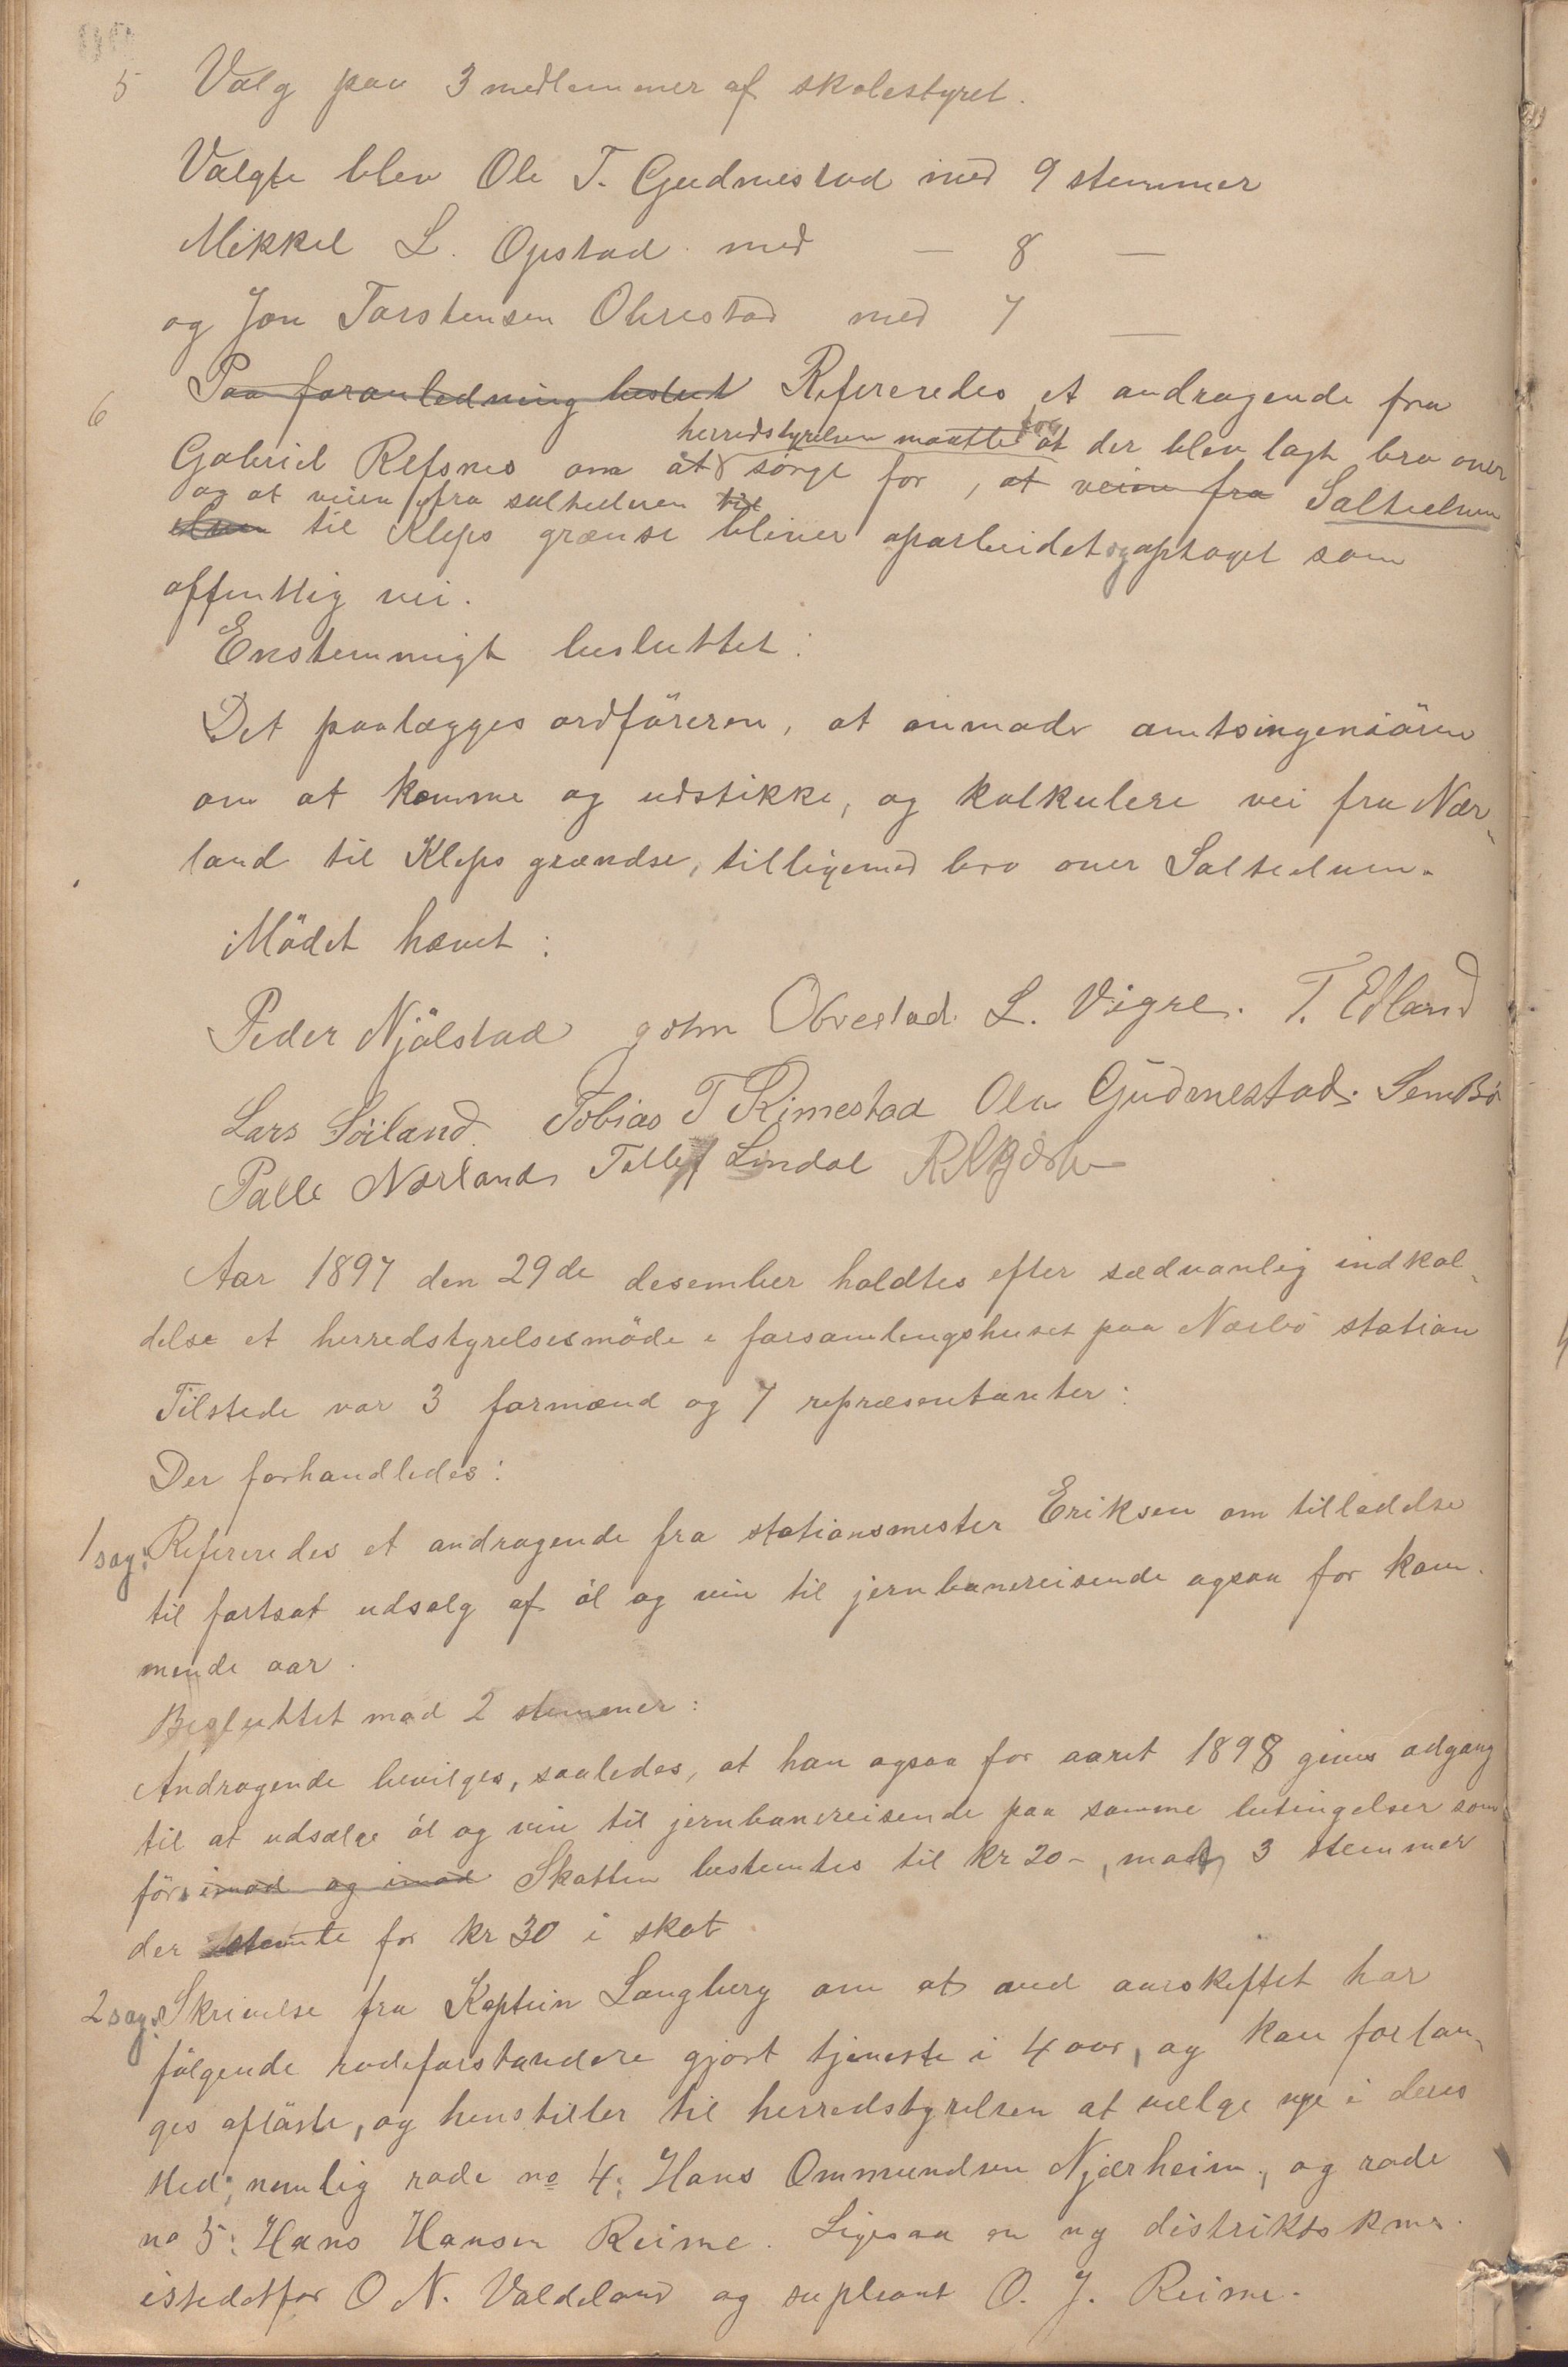 5 Valg paa 3 medlemmer af skolestyret.
Valgte blev Ole T. Gudmestad med 9 stemmer
Mikkel L. Opstad med — 8 —
og Jon Torstensen Obrestad med 7 —
6 Paa foranledning beslut Refereredes et andragende fra
herredstyrelsen maatte
Gabriel Refsnes om at sørge for, at der blev lagt bro over
at veien fra Saltielven
og at veien fra saltielven til
til Kleps grænse bliver oparbeidet og optaget som
offentlig vei.
Enstemmigt besluttet:
Det paalægges ordføreren, at anmode amtsingeniøren
om at komme og udstikke, og kalkulere vei fra Nær-
land til Kleps grændse, tilligemed bro over Saltielven.
Mödet hævet:
Peder Njölstad John Obrestad L. Vigre. T. Edland
Lars Söiland. Tobias T Rimestad Ola Gudmestad. Sem Bö
Palle Nærland Tollef Lindal
Aar 1897 den 29de desember holdtes efter sædvanlig indkal-
delse et herredstyrelsesmöde i forsamlingshuset paa Nærbö station
Tilstede var 3 formænd og 7 repræsentanter:
Der forhandledes:
1 sag: Refereredes et andragende fra stationsmester Eriksen om tilladelse
til fortsat udsalg af öl og vin til jernbanereisende ogsaa for kom-
mende aar.
Besluttet mod 2 stemmer:
Andragende bevilges, saaledes, at han ogsaa for aaret 1898 gives adgang
til at udsælge öl og vin til jernbanereisende paa samme betingelser som
för. imod og imod Skatten bestemtes til kr 20-, mod 3 stemmer
der stemte for kr 30 i skat
2 sag: Skrivelse fra Kaptein Langberg om at ved aarskiftet har
fölgende rodeforstandere gjort tjeneste i 4 aar, og kan forlan-
ges aflöste, og henstiller til herredstyrelsen at vælge nye i deres
sted; nemlig rode no 4: Hans Ommundsen Njærheim, og rode
no 5: Hans Hansen Reime. Ligesaa en ny distriktskms.
istedetfor O N. Valdeland og supleant O. J. Reime.